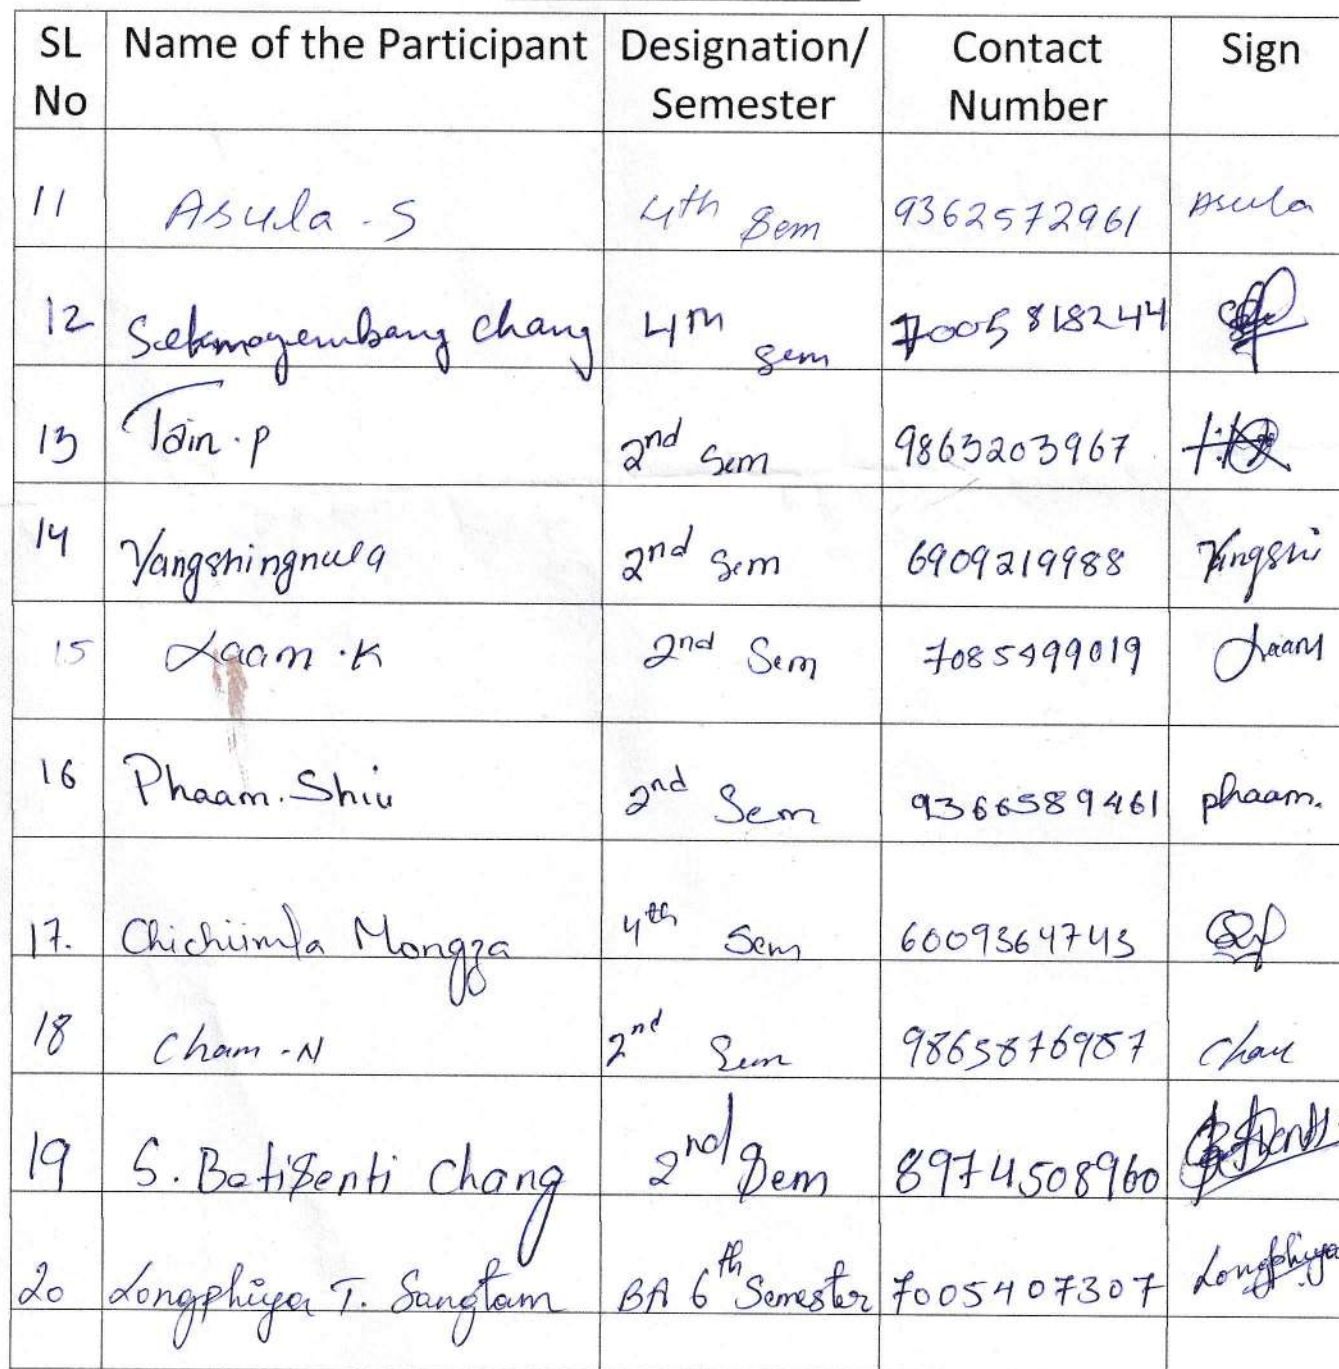 SL No | Name of the Participant | Designation/ Semester | Contact Number | Sign
11 | Asula - S | 4th Sem | 9362572961 | Asula
12 | chang | 4th sem | 7005818244
13 | Tain . P | 2nd Sem | 9863203967
14 | Yangshingnula | 2nd Sem | 6909219988 | Yangshi
15 | Laam . K | 2nd Sem | 7085499019 | Laam
16 | Phaam. Shiu | 2nd Sem | 9366589461 | phaam.
17. | Chichiimla Mongza | 4th Sem | 6009364743
18 | Cham - N | 2nd Sem | 9863876987 | Cham
19 | S. Batisenti Chang | 2nd Sem | 8974508960
20 | Longphiya T. Sangtam | BA 6th Semester | 7005407307 | Longphiya